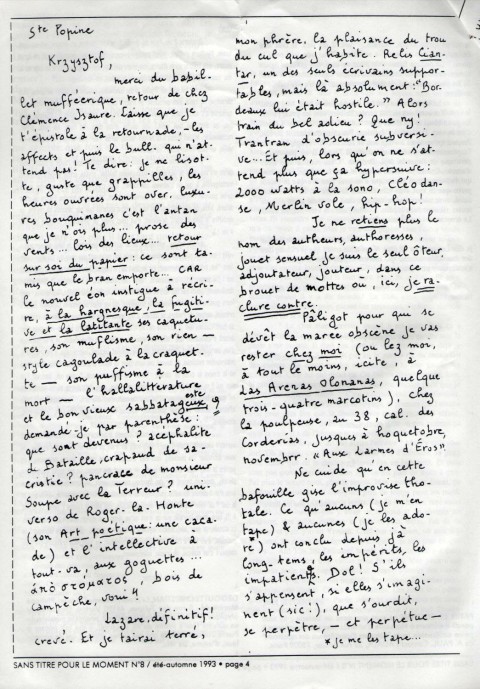 Ste Popine
Krzysztof,
merci du babil-
let muffecrique, retour de chez
Clémence Isaure. Laisse que je
t'épistole à la retournade, - les
affects et puis le bull. qui n'at-
tend pas! Te dire: je ne lisot-
te, guste que grappilles, les
heures ouvrées sont over, luxu-
res bouquimanes c'est l'antan
que je n'ois plus... prose des
vents... lois des lieux... retour
sur soi du papier: ce sont ta-
mis que le bran emporte... CAR
le nouvel éon instigue à récri-
re, à la hargnesque, la fugiti-
ve et la latitante ses caquetu-
res, son muflisme, son rien —
style cagoulade à la craquet-
te — son puffisme à la
mort — l'hallalittérature
et le bon vieux sabbatageux,
este
demandé-je par parenthèse:
que sont devenus? acéphalité
d. Bataille, crapaud de sa-
cristie? pancrace de monsieur
Soupe avec la Terreur? uni-
verso de Roger-la-Honte
(son Art poétique: une caca-
de) et l'intellective à
tout-va, aux goguettes...
ἀπὸ στόματος, bois de
campêche, voui!
Lazare, définitif!
crevé. Et je tairai terré,
mon phrère, la plaisance du trou
du cul que j'habite. Relis Cian-
tar, un des seuls écrivains suppor-
tables, mais là absolument: "Bor-
deaux lui était hostile." Alors
train du bel adieu? Que ny!
Trantran d'obscurie subversi-
ve... Et puis, lors qu'on ne s'at-
tend plus que ça hypersuive:
2000 watts à la sono, Cléo dan-
se, Merlin vole, hip-hop!
Je ne retiens plus le
nom des autheurs, authoresses,
jouet sensuel je suis le seul ôteur,
adjoutateur, jouteur, dans ce
brouet de mottes où, ici, je ra-
clure contre.
Pâligot pour qui se
dévêt la marée obscène je vas
rester chez moi (ou lez moi,
à tout le moins, icite, à
Las Arenas Olonanas, quelque
trois-quatre marcotins), chez
la poulpeuse, au 38, cal. des
Corderias, jusques à hoquetobre,
novembrr. "Aux Larmes d'Éros"
Ne cuide qu'en cette
bafouille gise l'improvise tho-
tale. Ce qu'aucuns (je m'en
tape) & aucunes (je les ado-
re*) ont conclu depuis jà
long-tems, les impérits, les
impatients. Dol! S'ils
s'appensent, si elles s'imagi-
nent (sic!), que s'ourdit,
se perpètre, — et perpétue —
* je me les tape...
SANS TITRE POUR LE MOMENT N°8 / été-automne 1993 • page 4